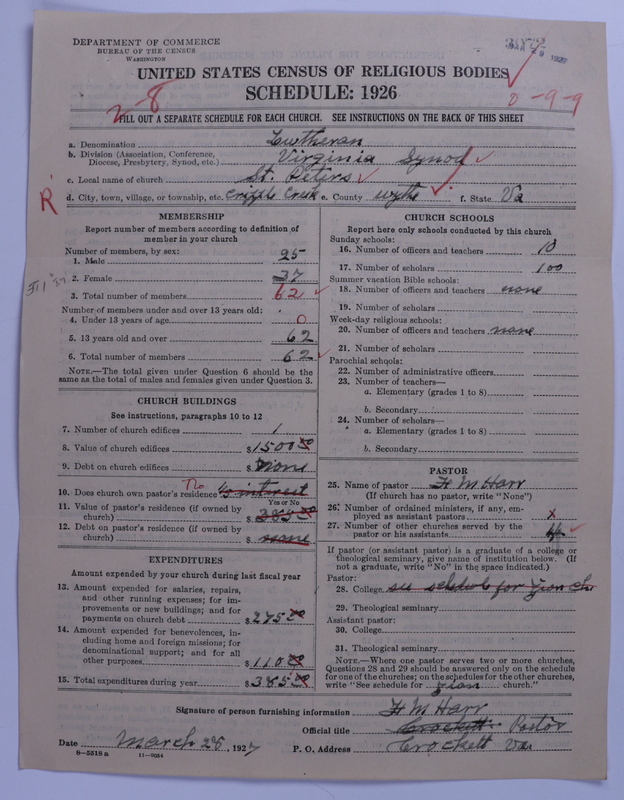 DEPARTMENT OF COMMERCE
BUREAU OF THE CENSUS
WASHINGTON
UNITED STATES CENSUS OF RELIGIOUS BODIES
SCHEDULE: 1926
2-8
0-9-9
FILL OUT A SEPARATE SCHEDULE FOR EACH CHURCH. SEE INSTRUCTIONS ON THE BACK OF THIS SHEET
a. Denomination Lutheran
b. Division (Association, Conference, Diocese, Presbytery, Synod, etc.) Virginia Synod
c. Local name of church St. Peters
d. City, town, village, or township, etc. Cripple Creek e. County Wythe f. State Va
R
MEMBERSHIP
Report number of members according to definition of
member in your church
Number of members, by sex:
1. Male 25
2. Female 37
3. Total number of members 62
Number of members under and over 13 years old:
4. Under 13 years of age 0
5. 13 years old and over 62
6. Total number of members 62
NOTE.—The total given under Question 6 should be
same as the total of males and females given under Question 3.
CHURCH BUILDINGS
See instructions, paragraphs 10 to 12
7. Number of church edifices 1
8. Value of church edifices $1500 00
9. Debt on church edifices $ None
10. Does church own pastor's residence No 1/3 interest
Yes or No
11. Value of pastor's residence (if owned by
church) $
12. Debt on pastor's residence (if owned by
church) $ none
EXPENDITURES
Amount expended by your church during last fiscal year
13. Amount expended for salaries, repairs,
and other running expenses; for im-
provements or new buildings; and for
payments on church debt $275 00
14. Amount expended for benevolences, in-
cluding home and foreign missions; for
denominational support; and for all
other purposes $110 00
15. Total expenditures during year $385 00
CHURCH SCHOOLS
Report here only schools conducted by this church
Sunday schools:
16. Number of officers and teachers 10
17. Number of scholars 100
Summer vacation Bible schools:
18. Number of officers and teachers none
19. Number of scholars
Week-day religious schools:
20. Number of officers and teachers none
21. Number of scholars
Parochial schools:
22. Number of administrative officers
23. Number of teachers—
a. Elementary (grades 1 to 8)
b. Secondary
24. Number of scholars—
a. Elementary (grades 1 to 8)
b. Secondary
PASTOR
25. Name of pastor F M Harr
(If church has no pastor, write "None")
26. Number of ordained ministers, if any, em-
ployed as assistant pastors x
27. Number of other churches served by the
pastor or his assistants
If pastor (or assistant pastor) is a graduate of a college or
theological seminary, give name of institution below. (If
not a graduate, write "No" in the space indicated.)
Pastor:
28. College see schedule for Zion Ch
29. Theological seminary
Assistant pastor:
30. College
31. Theological seminary
NOTE.—Where one pastor serves two or more churches,
Questions 28 and 29 should be answered only on the schedule
for one of the churches; on the schedules for the other churches,
write "See schedule for Zion church."
Signature of person furnishing information F M Harr
Official title Crockett Pastor
Date March 28, 1927 P. O. Address Crockett Va.
8—5518 a 11—9054